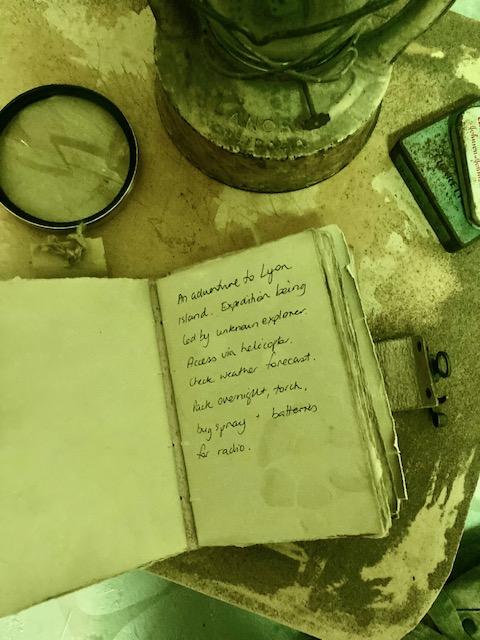 An adventure to Lyon
Island. Expedition being
led by unknown explorer.
Access via helicopter.
Check weather forecast.
Pack overnight, torch,
bug spray + batteries
for radio.